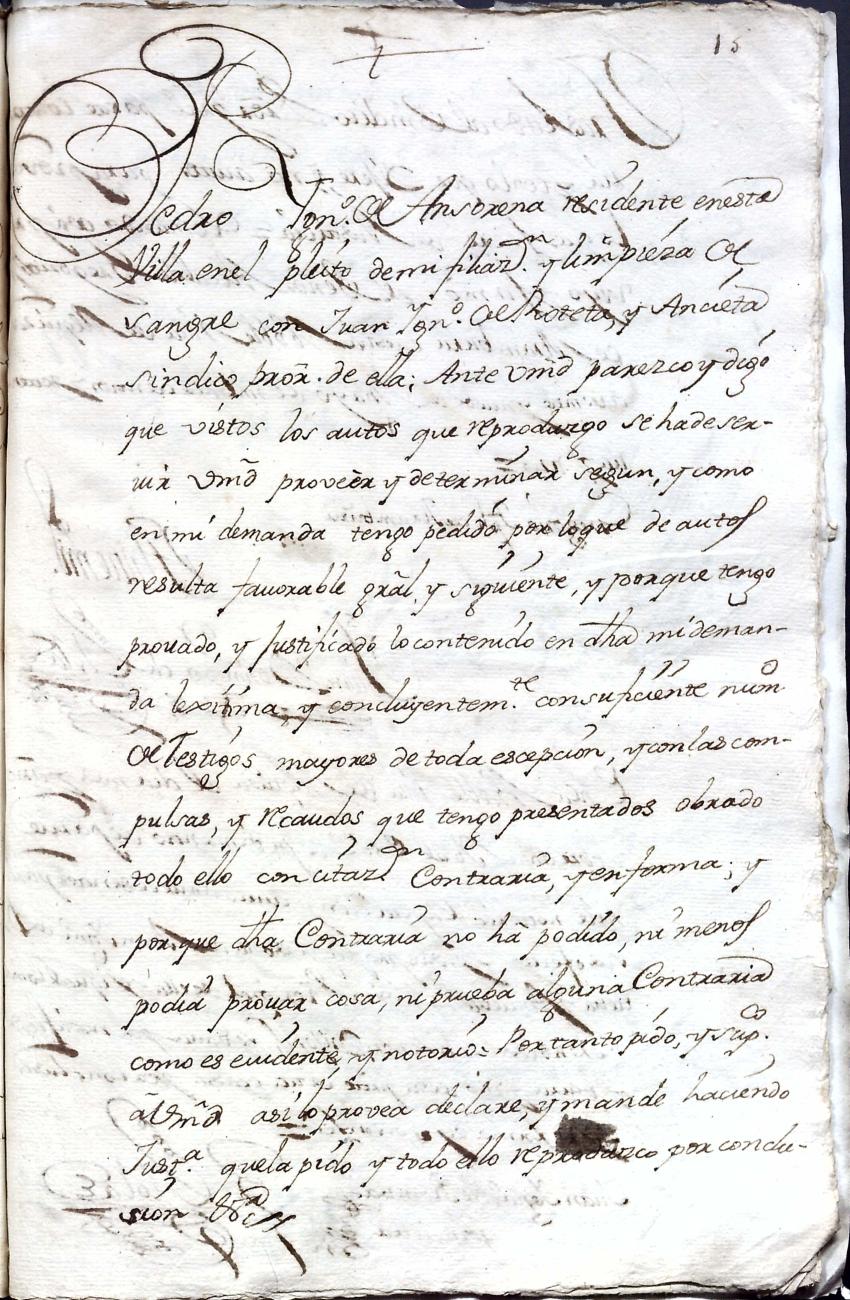 15
Pedro Ign.º de Ansorena residente enesta
Villa enel pleito demi filiaz.ⁿ y limpieza de
sangre con Juan Ign.º de Roteta, y Ancieta
sindico pror̃. de ella; Ante Vmd̃ parezco y digo
que vistos los autos que reproduzgo se hadeser-
uir Vmd̃ proveèr y determinar segun, y como
en mi demanda tengo pedido por loque de autos
resulta fauorable gral̃ y siguiente, y porque tengo
prouado, y Justificado locontenido en dha mi deman-
da lexitima, y concluyentem.te consuficiente num.º
de Testigos mayores de toda escepcion, yconlas com-
pulsas, y recaudos que tengo presentados obrado
todo ello con citaz.on Contraria, yenforma; y
por que dha Contraria no hà podido, ni menos
podia prouar cosa, ni prueba alguna Contraria
como es euidente, y notorio= Portanto pido, y sup.co
à Vmd̃ asi loprovea declare, y mande haciendo
Just.ª quela pido y todo ello reproduzco por conclu-
sion &ª